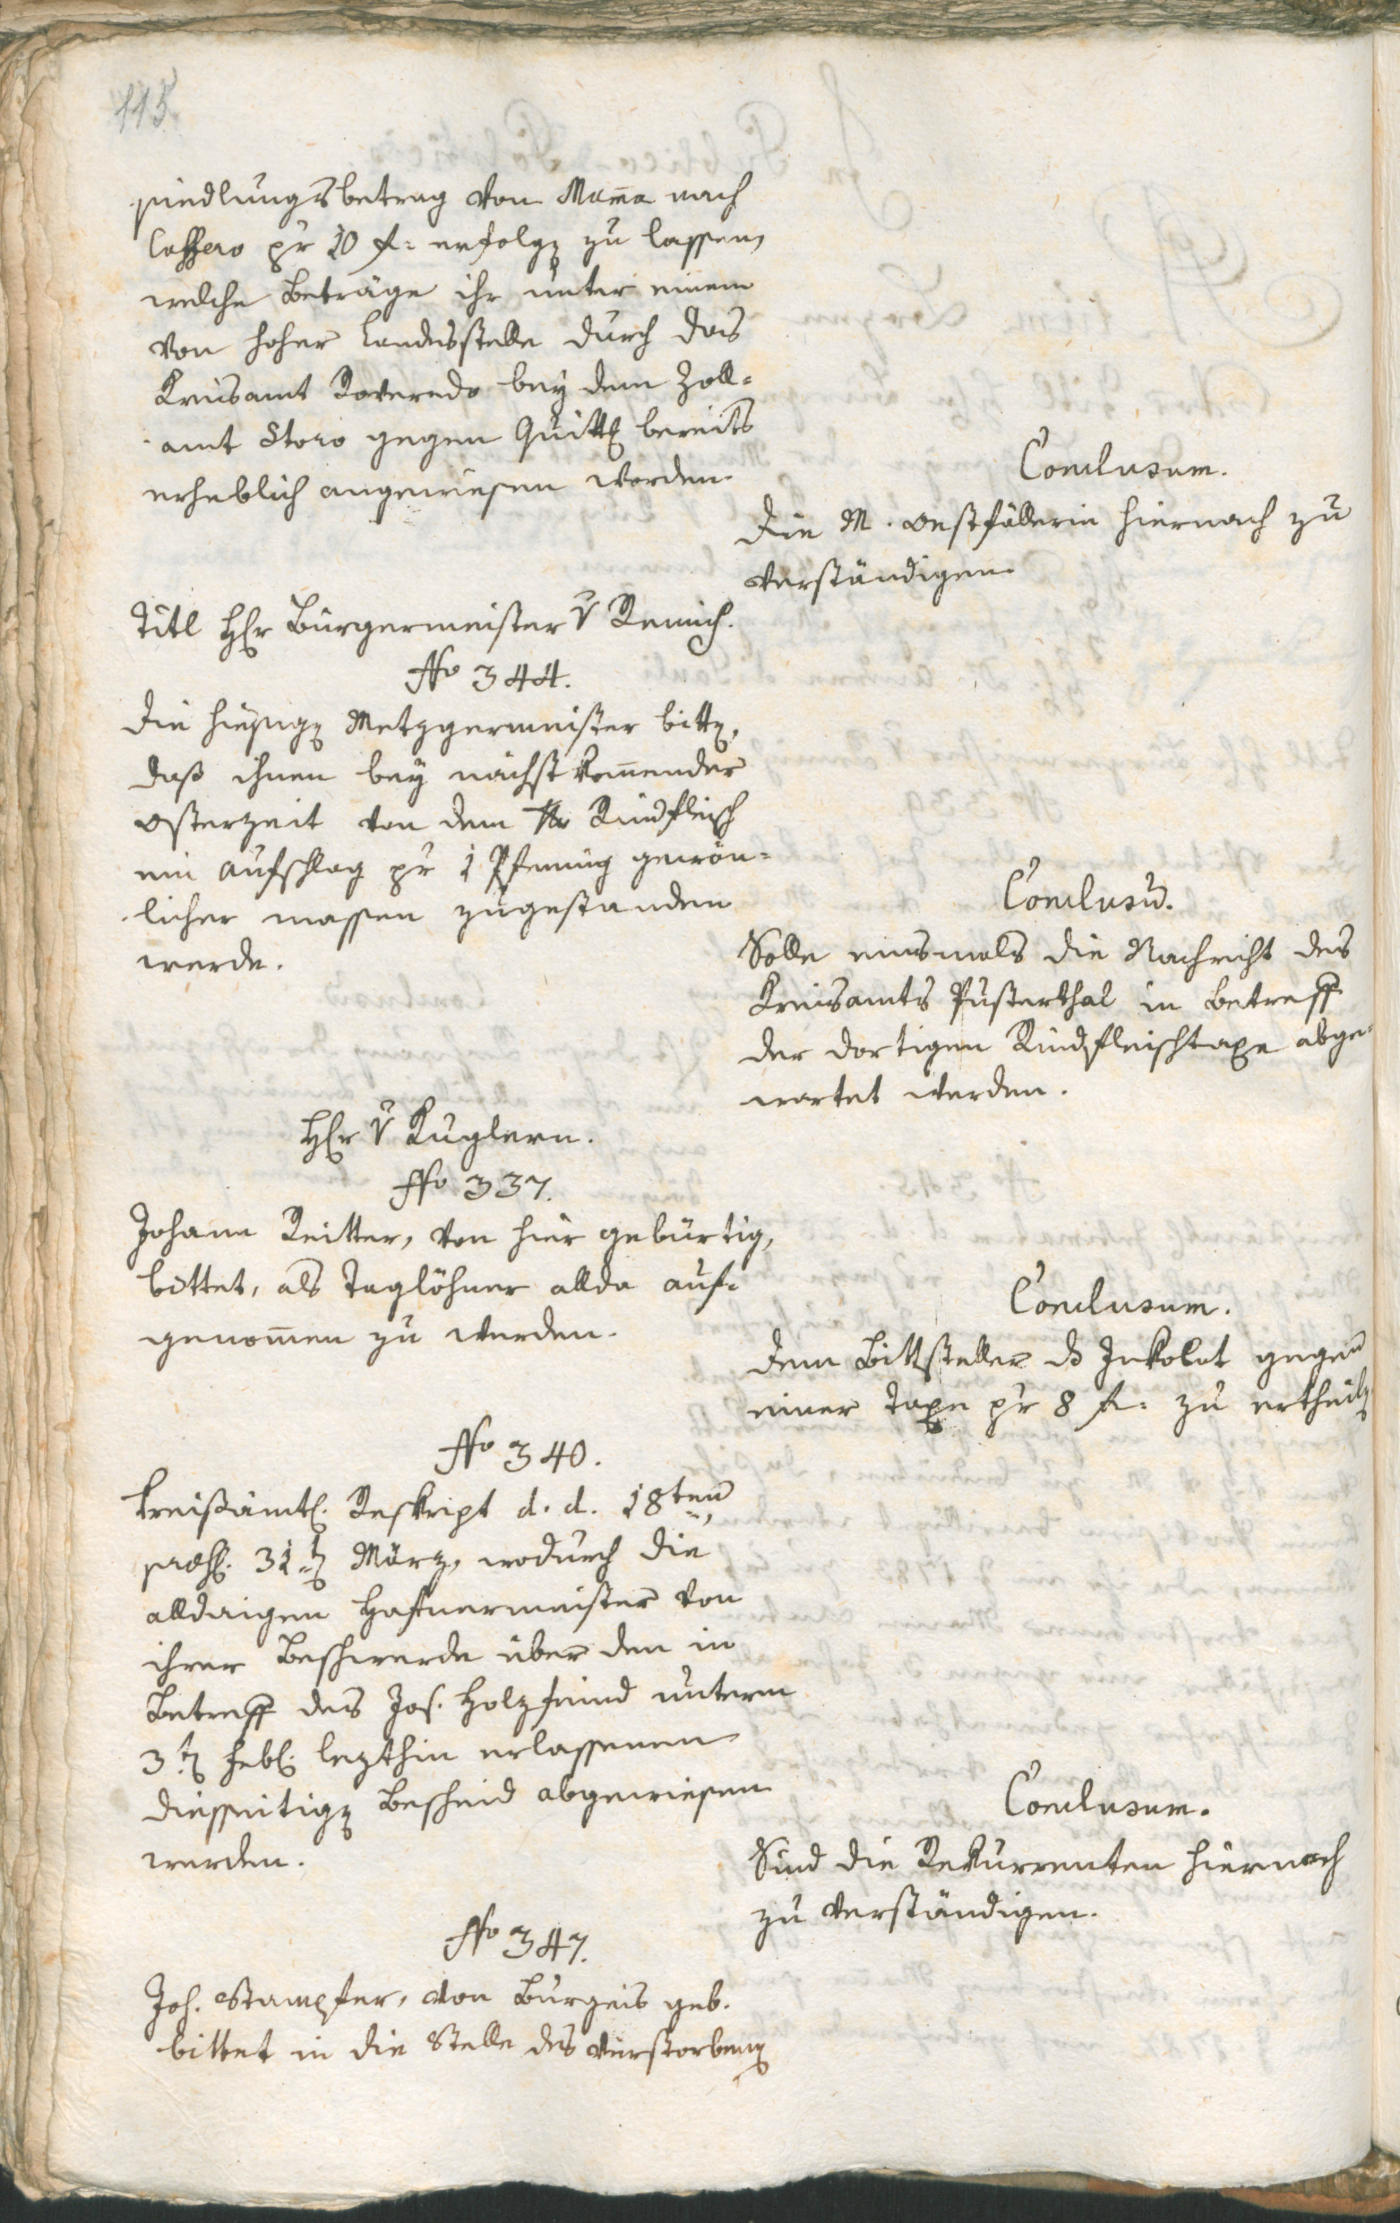 115
siedlungsbetrag von Mama nach
Caffaro pr 10 f= erfolgen zu lassen,
welche Beträge ihr unter einem
von hoher Landesstelle durch das
Kreisamt Roveredo bey dem Zoll=
amt Storo gegen Quitt. bereits
erheblich angewiesen worden.
Conclusum.
Die M. Oestfällerin hiernach zu
verständigen.
Titl H. Bürgermeister v Remich.
No 344.
Die hiesige Metzgermeister bitten,
daß ihnen bey nächst kommender
Osterzeit von dem Rindfleisch
ein Aufschlag pr 1 Pfennig gewön=
licher massen zugestanden
werde.
Conclusū.
Solle einsmals die Nachricht des
Kreisamts Pusterthal in Betreff
der dortigen Rindfleischtaxe abge=
wartet werden.
H. v Kuglern.
No 337.
Johann Reitter, von hier gebürtig,
bittet, als Taglöhner allda auf=
genom̄en zu werden.
Conclusum.
Dem Bittsteller ds Inkolat gegen
einer Taxe pr 8 f= zu ertheilen
No 340.
Kreißämtl. Reskript d. d. 18ten,
praes. 31ten März, wodurch die
alldaigen Hafnermeister von
ihrer Beschwerde über den in
Betreff des Jos. Holzfeind unterm
3ten Feb. lezthin erlassenen
diesseitigen Bescheid abgewiesen
werden.
Conclusum.
Sind die Rekurrenten hiernach
zu verständigen.
No 347.
Joh. Stampfer, von Burgeis geb.
bittet in die Stelle des verstorbenen